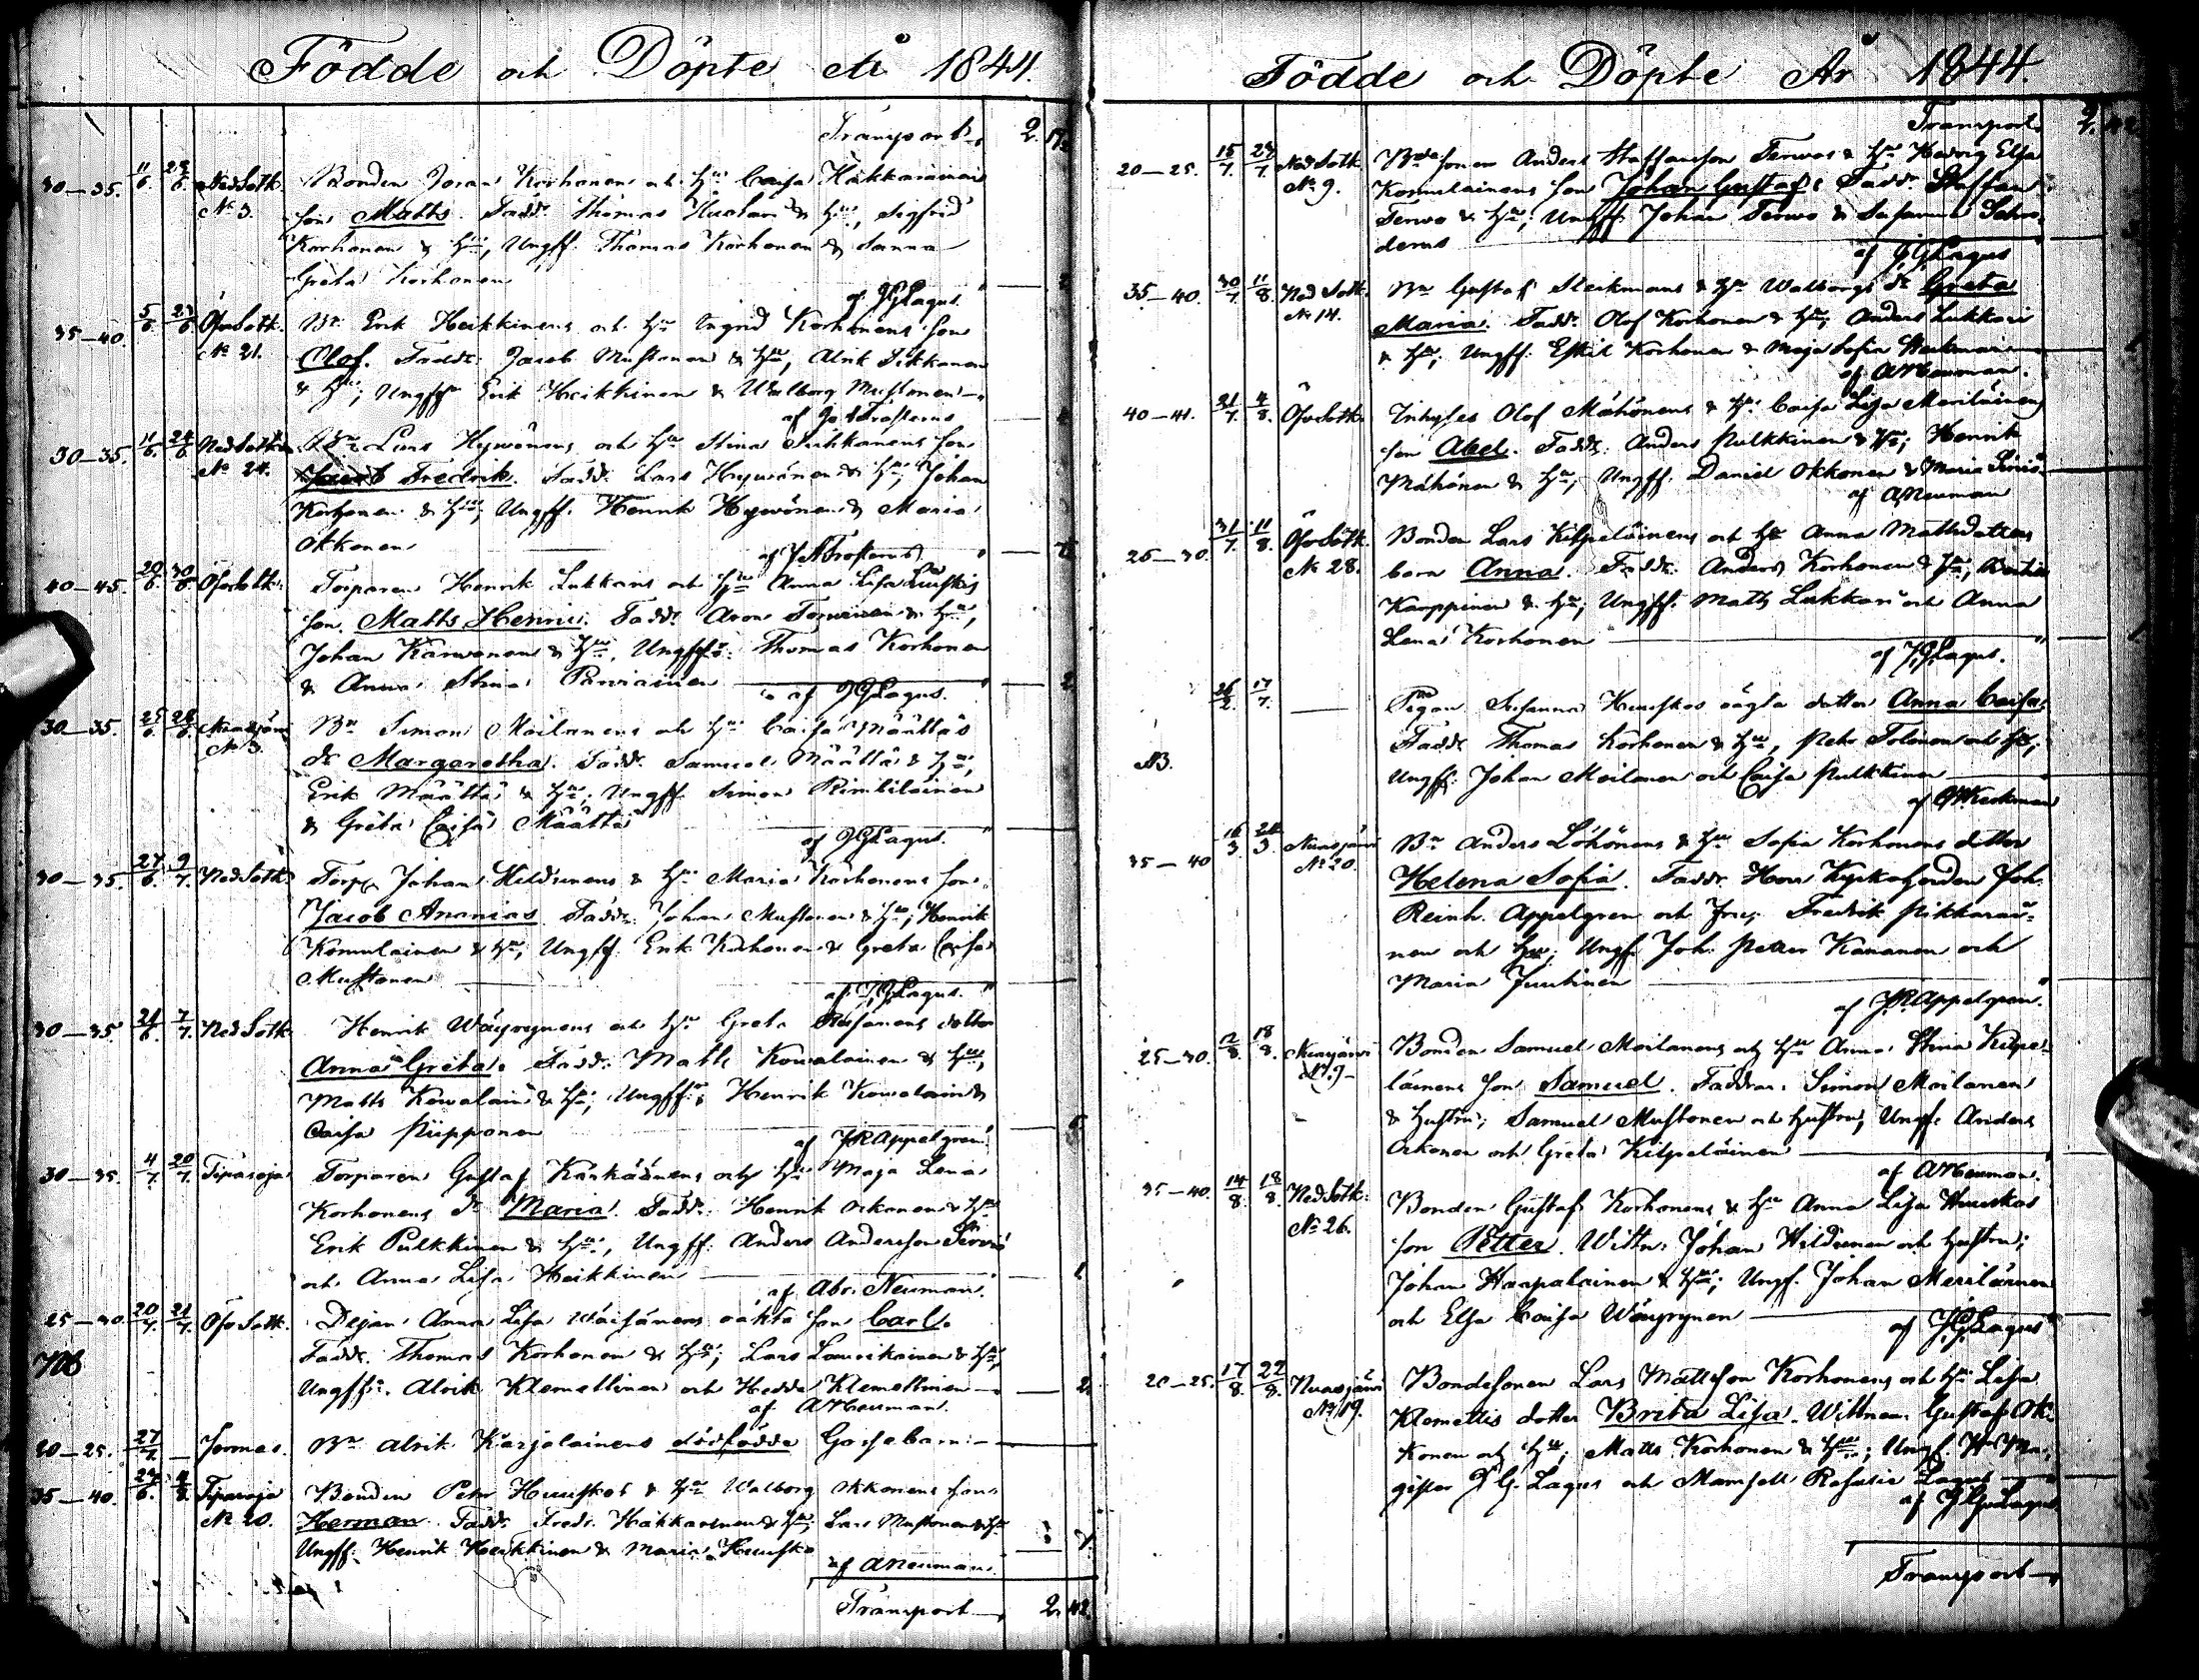 Födde och Döpte År 1844.
Transport 2
30–35. 11/6. 23/6. Ned Sotk. Bonden Göran Korhonens och Hu Caisa Hakkarainens
N:o 3. son Matts. Fadd: Thomas Huotari & Hu, Sigfrid
Korhonen & Hu, Ungff. Thomas Korhonen & Sanna
Greta Korhonen
af JGLagus.
35–40. 5/6. 23/6 Öfv Sotk. Bn Erik Heikkinens och Hu Ingrid Korhonens son
N:o 21. Olof. Fadd: Jacob Mustonen & Hu, Alrik Sikkanen
& Hu; Ungff Erik Heikkinen & Walborg Mustonen
af
30–35. 11/6. 24/6 Ned Sotk Bn Lars Hyvönens och Hu Stina Sikkanens son
N:o 24. Jacob Fredrik. Fadd: Lars Hyvönen & Hu; Johan
Korhonen & Hu; Ungff. Henrik Hyvönen & Maria
Okkonen
af
40–45. 20/6. 30/6. Öfv Sotk. Torparen Henrik Lukkaris och Hu Anna Lisa Huuskos
son Matts Henric. Fadd: Aron Tervonen & Hu,
Johan Karvonen & Hu, Ungff: Thomas Korhonen
& Anna Stina Parviainen
af JGLagus.
30–35. 25/6. 28/6. Nuasjärvi Bn Simon Moilanens och Hu Caisa Määttäs
N:o 3. dr Margaretha. Fadd: Samuel Määttä & Hu;
Erik Määttä & Hu; Ungff. Simon Rimbiläinen
& Greta Caisa Määttä
af JGLagus.
30–35. 27/6. 9/7. Ned Sotk Torp. Johan Heldunens & Hu Maria Korhonens son
Jacob Ananias. Fadd: Johan Mustonen & Hu; Henrik
Komulainen & Hu; Ungff. Erik Korhonen & Greta Caisa
Mustonen
af JGLagus.
30–35. 24/6. 7/7. Ned Sotk Henrik Wäyrynens och Hu Greta dotter
Anna Greta. Fadd: Matts Kovalainen & Hu,
Matts Kovalain & Hu; Ungff: Henrik Kovalain &
Caisa Piipponen
af JRAppelgren.
30–35. 4/7. 20/7. Tipasoja Torparen Gustaf Kärkäinens och Hu Maja Lena
Korhonens dr Maria. Fadd: Henrik Okkonen & Hu
Erik Pulkkinen & Hu, Ungff. Anders Andersson
och Anna Lisa Heikkinen
af Abr. Neuman.
25–30. 20/7. 21/7. Öfv Sotk. Pigan Anna Lisa Väisänens oäkta son Carl.
Fadd: Thomas Korhonen & Hu; Lars Laurikainen & Hu;
Ungff: Alrik Klemettinen och Hedda Klemettinen
af ANeuman.
20–25. 27/7. – Jormas. Bn Alrik Karjalainens dödfödde Gossebarn
35–40. Tipasoja Bonden Petr Huuskos & Hu Walborg Okkonens son
N:o 20. Herman. Fadd: Fredr. Hakkarainen & Hu; Lars Mustonen & Hu
Ungff: Henrik Heikkinen & Maria Huusko
af ANeuman.
Transport 2 42.
Födde och Döpte År 1844.
Transport 2 42
20–25. 15/7. 23/7. Ned Sotk. Bdesonen Anders Staffansson Tervos & Hu Hedvig Elsa
N:o 9. Komulainens son Johan Gustaf. Fadd: Staffan
Tervo & Hu; Ungff. Johan Tervo & Susanna Schrö-
derus
af JGLagus
35–40. 30/7. 11/8. Ned Sotk. Bn Gustaf Steikmans & Hu Walborgs dr Greta
N:o 14. Maria. Fadd: Olof Korhonen & Hu; Anders Lukkari
& Hu; Ungff: Eskil Korhonen & Maja Sofia Steikman
af ANeuman.
40–41. 21/7. 4/8. Öfv Sotk. Inhyses Olof Mähönens & Hu Caisa Lisa Meriläinens
son Abel. Fadd: Anders Pulkkinen & Hu; Henrik
Mähönen & Hu; Ungff. Daniel Okkonen & Maria
af ANeuman
26–30. 31/7. 11/8. Öfv Sotk. Bonden Lars Kilpeläinens och Hu Anna Mattsdotters
N:o 28. barn Anna. Fadd: Anders Korhonen & Hu,
Karppinen & Hu; Ungff. Matts Lukkari och Anna
Lena Korhonen
af JGLagus.
17/7. – Pigan Susanna Huuskos oägta dotter Anna Caisa.
Fadd: Thomas Korhonen & Hu, Petr Tolonen och Hu;
NB. Ungff: Johan Moilanen och Caisa Pulkkinen
af
35–40 16/3. 24/3. Nuasjärvi Bn Anders Löhönens & Hu Sofia Korhonens dotter
N:o 20. Helena Sofia. Fadd: Herr Kyrkoherden Joh.
Reinh. Appelgren och Fru; Fredrik Pikkarai-
nen och Hu; Ungf. Joh. Petter Kananen och
Maria Juntunen
af JRAppelgren.
25–30. 12/8. 18/8. Nuasjärvi Bonden Samuel Moilanens och Hu Anna Stina Kilpe-
N:o 9 läinens son Samuel. Faddrar: Simon Moilanen
& Hustru; Samuel Mustonen och Hustru; Ungf. Anders
Okkonen och Greta Kilpeläinen
af ANeuman.
35–40. 14/8. 18/8. Ned Sotk. Bonden Gustaf Korhonens & Hu Anna Lisa Huuskos
N:o 26. son Petter. Wittn: Johan Heldunen och Hustru;
Johan Haapalainen & Hu; Ungf. Johan Meriläinen
och Elsa Caisa Wäyrynen
af JGLagus
20–25. 17/8. 22/8. Nuasjärvi Bondesonen Lars Mattsson Korhonens och Hu Lisa
N:o 19. Klemettis dotter Brita Lisa. Wittnen: Gustaf Ok-
konen och Hu; Matts Korhonen & Hu; Ungf. Hr Ma-
gister J. G. Lagus och Mamsell Rosalie Lagus
af JGLagus
Transport